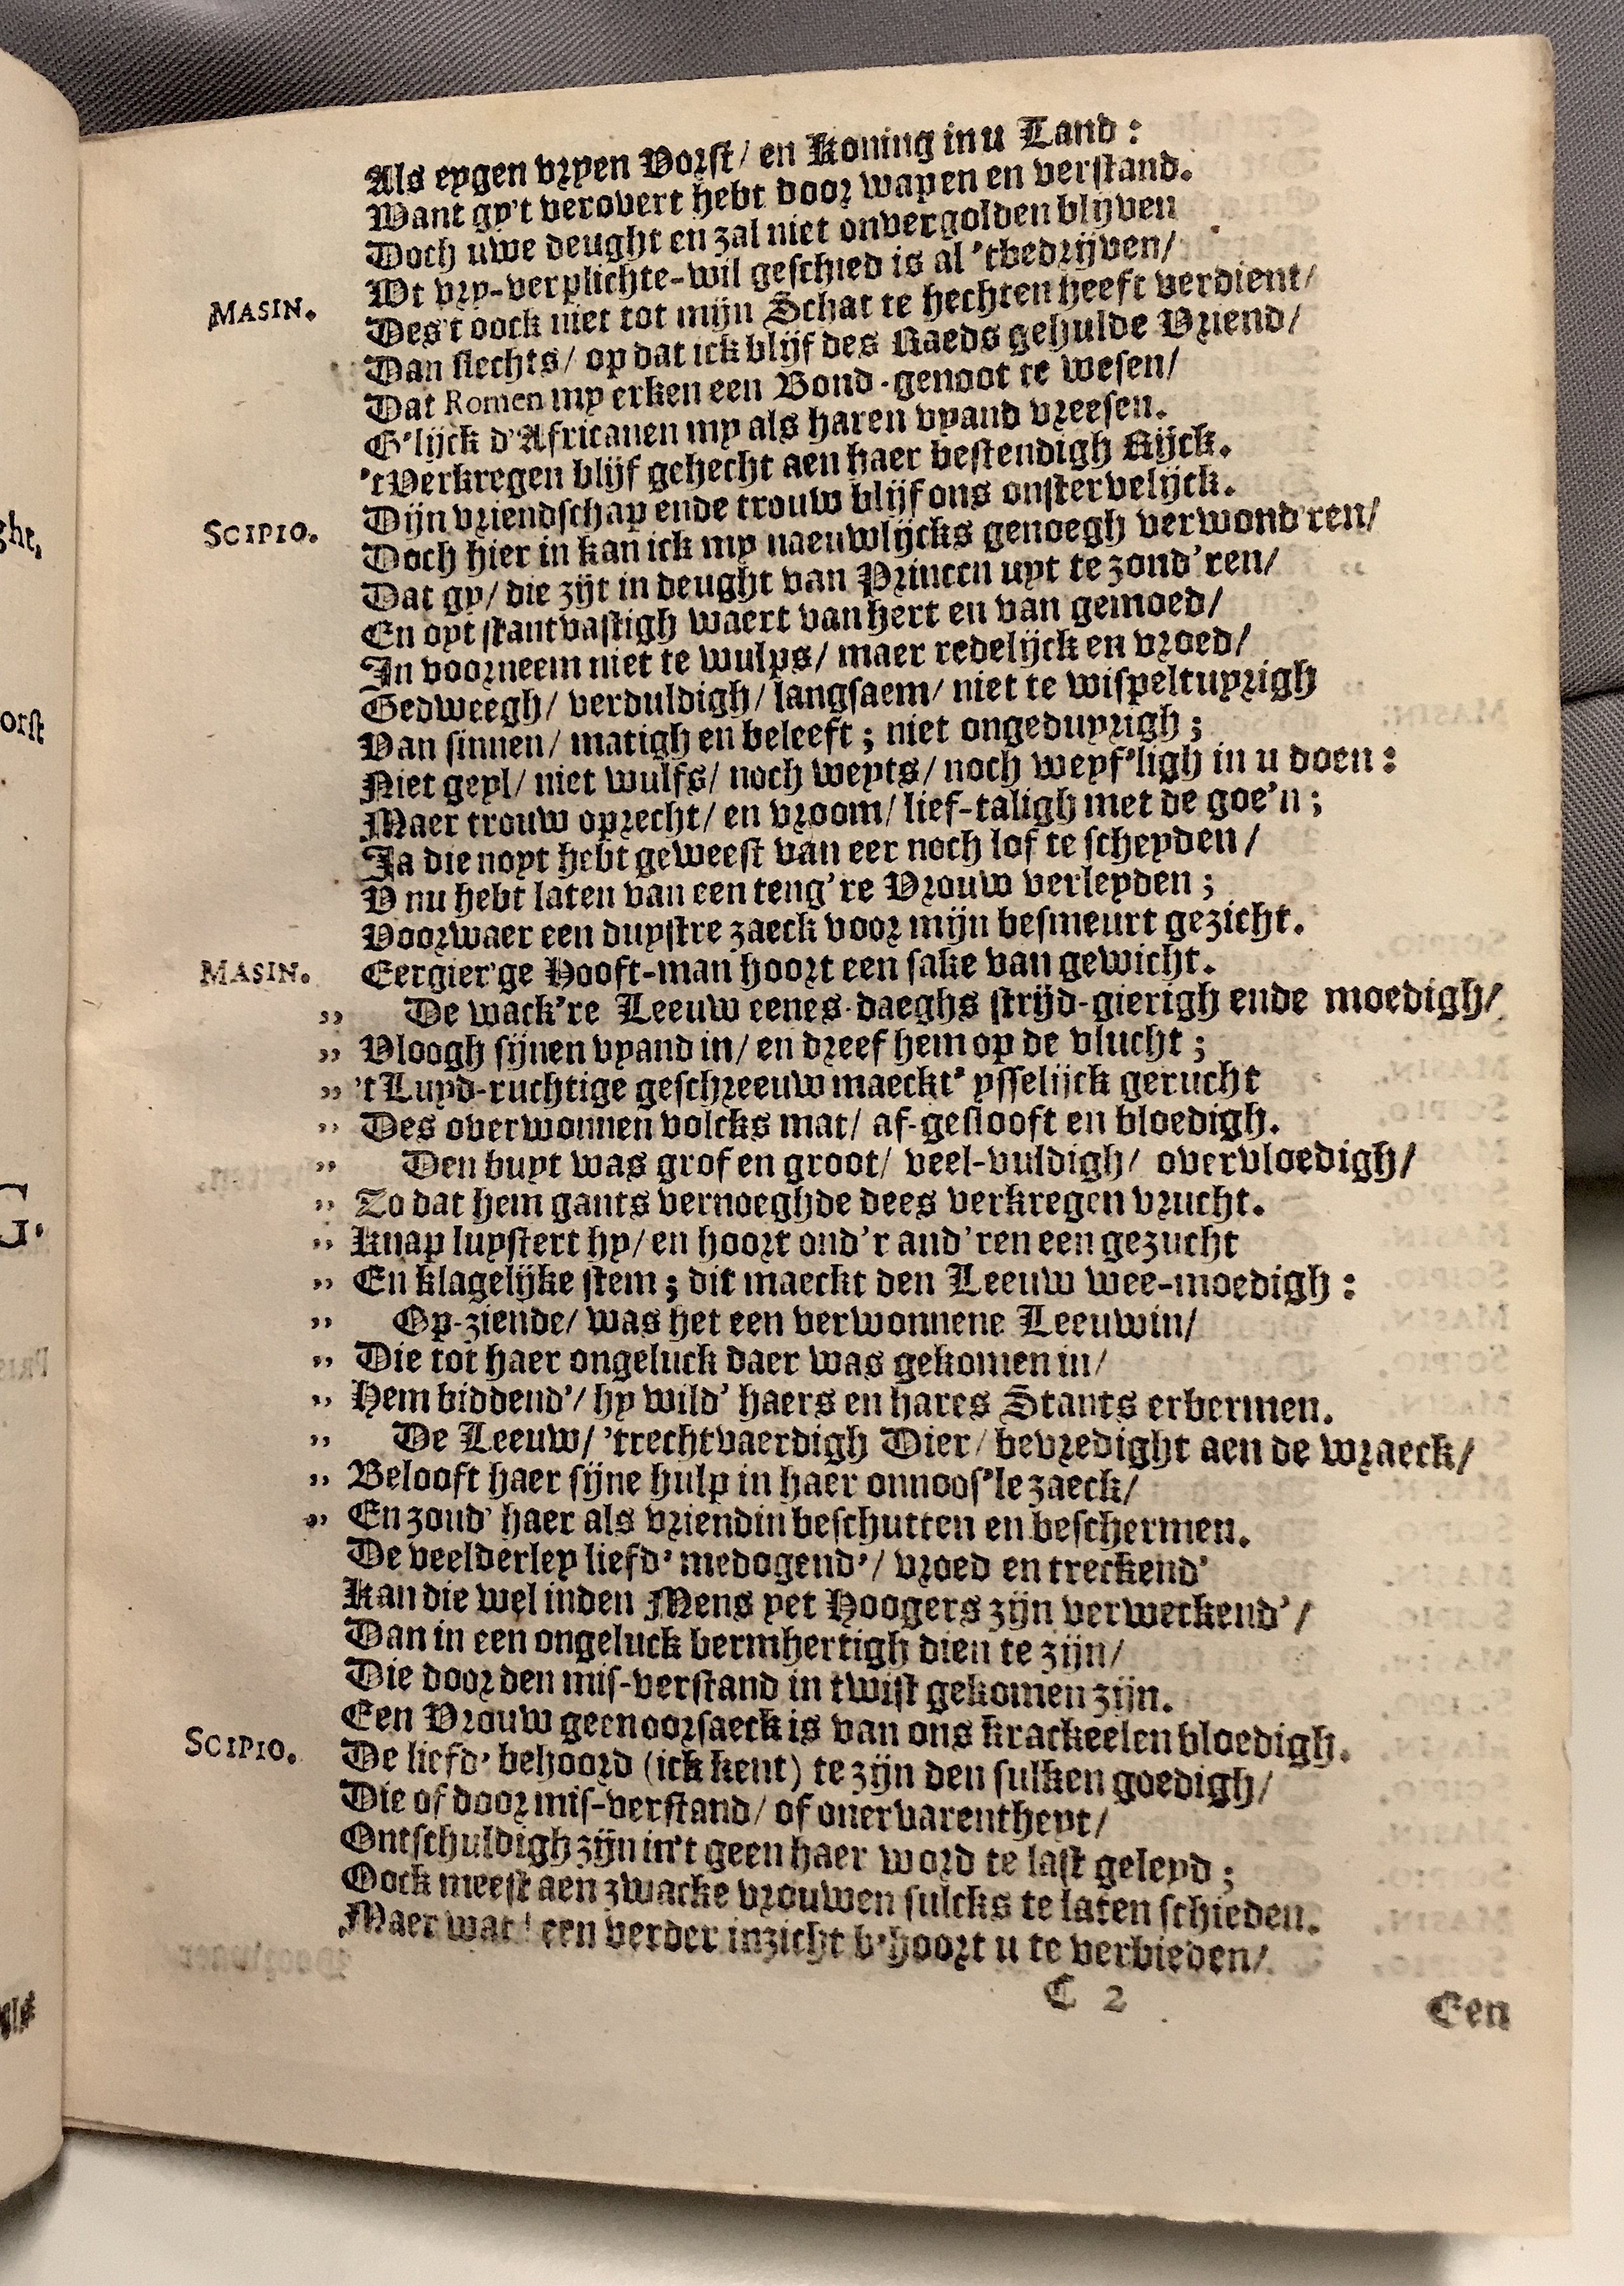 Als eygen vryen Vorst/ en Koning in u Land:
Want gy't verovert hebt door wapen en verstand.
Doch uwe deught en zal niet onvergolden blijven
MASIN. Wt vry-verplichte-wil geschied is al 'tbedrijven/
Des't oock niet tot mijn Schat te hechten heeft verdient/
Dan slechts/ op dat ick blijf des Raeds gehulde Vriend/
Dat Romen my erken een Bond-genoot te wesen/
G'lijck d'Africanen my als haren vyand vreesen.
'tVerkregen blijf gehecht aen haer bestendigh Rijck.
SCIPIO. Dijn vriendschap ende trouw blijf ons onstervelijck.
Doch hier in kan ick my naeuwlijcks genoegh verwond'ren/
Dat gy/ die zijt in deught van Princen uyt te zond'ren/
En oyt stantvastigh waert van hert en van gemoed/
In voorneem niet te wulps/ maer redelijck en vroed/
Gedweegh/ verduldigh/ langsaem/ niet te wispeltuyrigh
Van sinnen/ matigh en beleeft; niet ongeduyrigh;
Niet geyl/ niet wulfs/ noch weyts/ noch weyf'ligh in u doen:
Maer trouw oprecht/ en vroom/ lief-taligh met de goe'n;
Ja die noyt hebt geweest van eer noch lof te scheyden/
V nu hebt laten van een teng're Vrouw verleyden;
Voorwaer een duystre zaeck voor mijn besmeurt gezicht.
MASIN. Eergier'ge Hooft-man hoort een sake van gewicht.
,, De wack're Leeuw eenes-daeghs strijd-gierigh ende moedigh/
,, Vloogh sijnen vyand in/ en dreef hem op de vlucht;
,, 't Luyd-ruchtige geschreeuw maeckt' ysselijck gerucht
,, Des overwonnen volcks mat/ af-geslooft en bloedigh.
,, Den buyt was grof en groot/ veel-vuldigh/ overvloedigh/
,, Zo dat hem gants vernoeghde dees verkregen vrucht.
,, Knap luystert hy/ en hoort ond'r and'ren een gezucht
,, En klagelijke stem; dit maeckt den Leeuw wee-moedigh:
,, Op-ziende/ was het een verwonnene Leeuwin/
,, Die tot haer ongeluck daer was gekomen in/
,, Hem biddend'/ hy wild' haers en hares Stants erbermen.
,, De Leeuw/ 'trechtvaerdigh Dier/ bevredight aen de wraeck/
,, Belooft haer sijne hulp in haer onnoos'le zaeck/
,, En zoud' haer als vriendin beschutten en beschermen.
De veelderley liefd' medogend'/ vroed en treckend'
Kan die wel inden Mens yet Hoogers zijn verweckend'/
Dan in een ongeluck bermhertigh dien te zijn/
Die door den mis-verstand in twist gekomen zijn.
Een Vrouw geen oorsaeck is van ons krackeelen bloedigh.
SCIPIO. De liefd' behoord (ick kent) te zijn den sulken goedigh/
Die of door mis-verstand/ of onervarentheyt/
Ontschuldigh zijn in't geen haer word te last geleyd;
Oock meest aen zwacke vrouwen sulcks te laten schieden.
Maer wat! een verder inzicht b'hoort u te verbieden/
C 2
Een